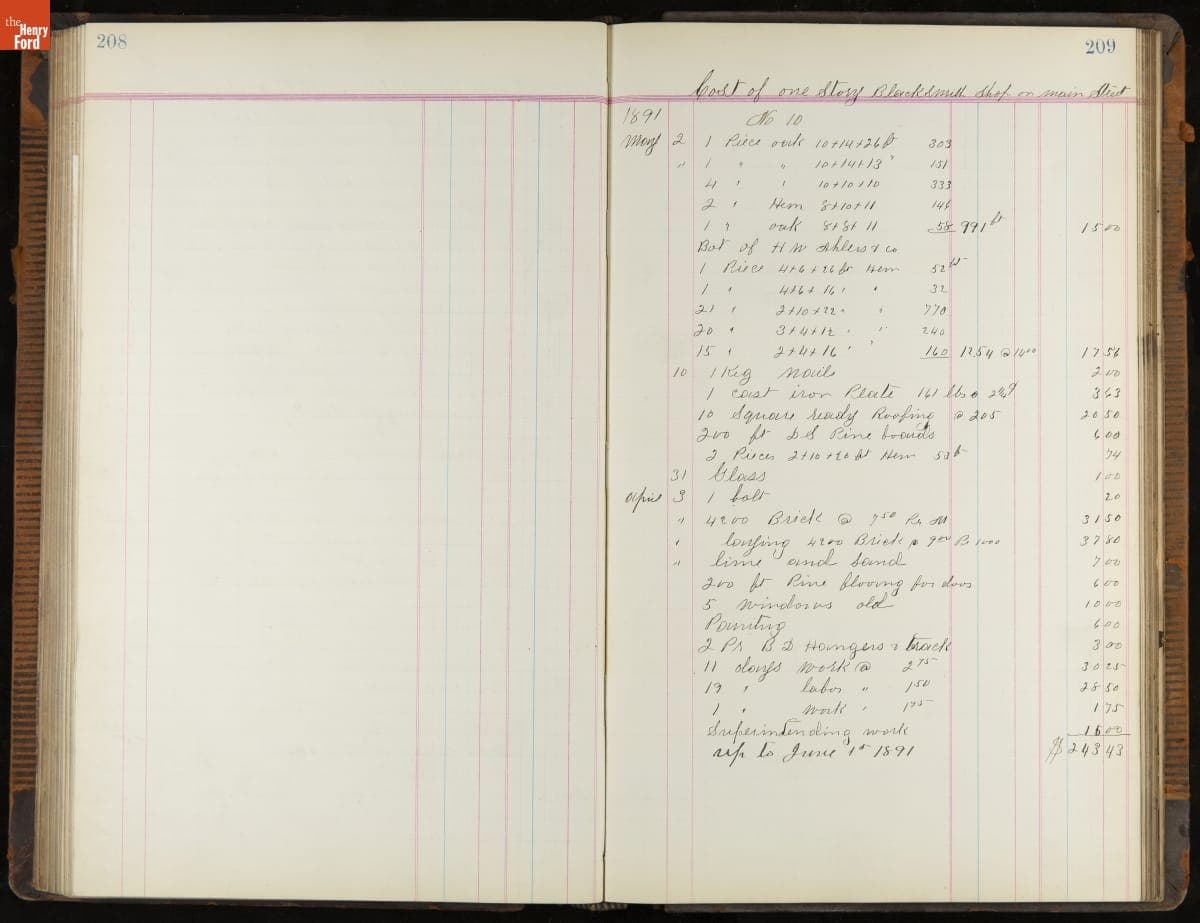 the Henry Ford
208
209
Cost of one Story Blacksmith Shop on main Street
1891 No 10
May 2 1 Piece oak 10+14+26 ft 303
" 1 " " 10+14+13 " 151
4 " " 10+10+10 333
2 " Hem 8+10+11 146
1 " oak 8+8+11 58 991 ft 15 00
Bot of H W Ahlers & co
1 Piece 4+6+26 ft Hem 52 ft
1 " 4+6+16 " " 32
21 " 2+10+22 " " 770
20 " 3+4+12 " " 240
15 " 2+4+16 " " 160 1254 @ 14 00 17 56
10 1 Keg Nails 2 00
1 cast iron Plate 161 lbs @ 3 63
10 Square ready Roofing @ 205 20 50
200 ft D S Pine boards 6 00
2 Pieces 2+10+20 ft Hem 53 ft 74
31 Glass 1 00
Aprie 3 1 bolt 20
" 4200 Brick @ 7 50 Pr M 31 50
" laying 4200 Brick @ 9 00 Pr 1000 37 80
" lime and Sand 7 00
200 ft Pine flooring for doors 6 00
5 Windows old 10 00
Painting 6 00
2 Pr B D Hangers & track 3 00
11 days work @ 2 75 30 25
19 " labor " 1 50 28 50
1 " work " 1 75 1 75
Superintending work 15 00
up to June 1st 1891 $ 243 43